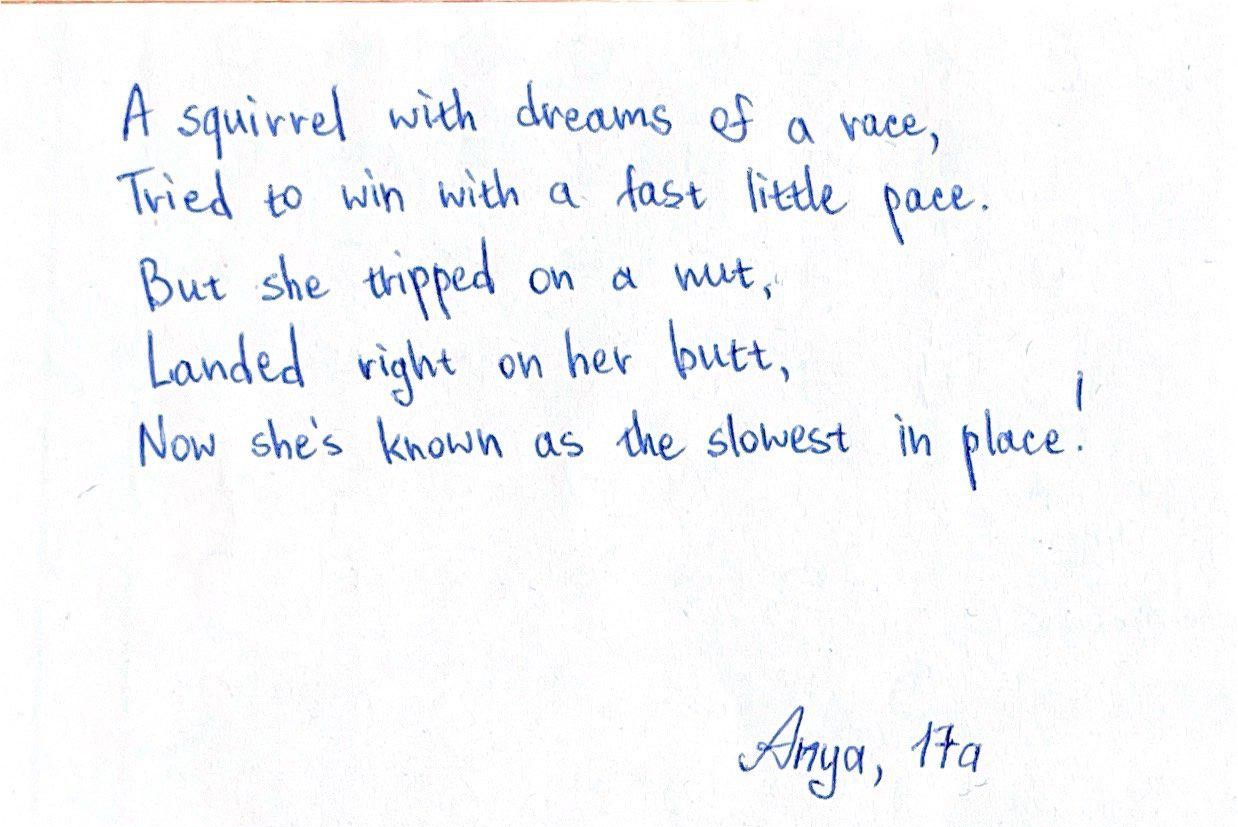 A squirrel with dreams of a race,
Tried to win with a fast little pace.
But she tripped on a nut,
Landed right on her butt,
Now she's known as the slowest in place!
Anya, 17a